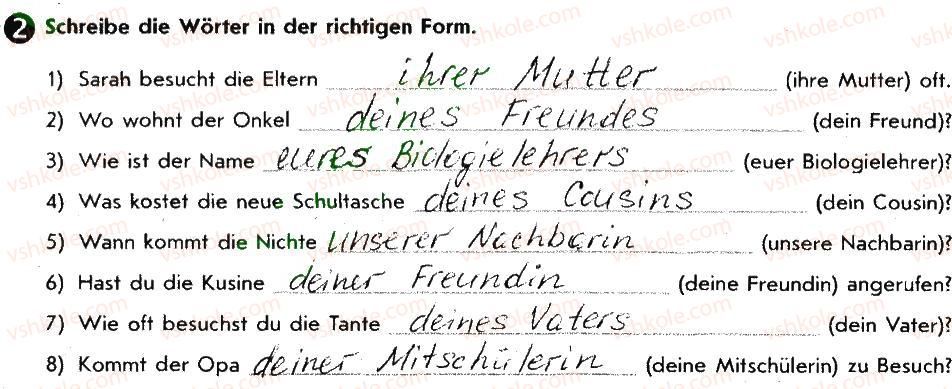 2 Schreibe die Wörter in der richtigen Form.
1) Sarah besucht die Eltern ihrer Mutter (ihre Mutter) oft.
2) Wo wohnt der Onkel deines Freundes (dein Freund)?
3) Wie ist der Name eures Biologielehrers (euer Biologielehrer)?
4) Was kostet die neue Schultasche deines Cousins (dein Cousin)?
5) Wann kommt die Nichte unserer Nachbarin (unsere Nachbarin)?
6) Hast du die Kusine deiner Freundin (deine Freundin) angerufen?
7) Wie oft besuchst du die Tante deines Vaters (dein Vater)?
8) Kommt der Opa deiner Mitschülerin (deine Mitschülerin) zu Besuch